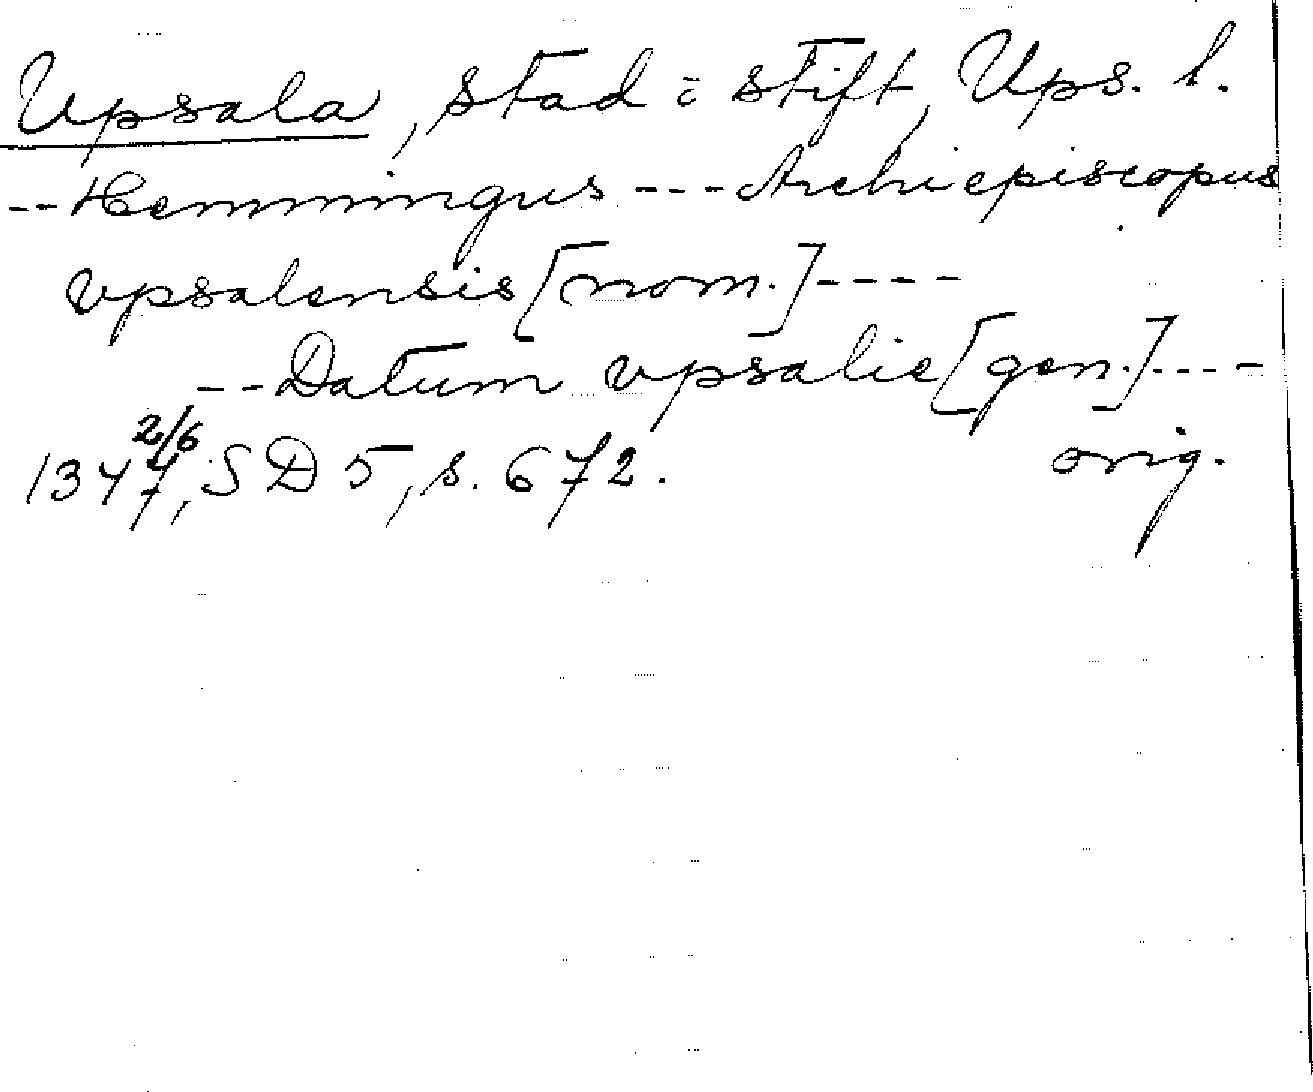 Upsala, stad o stift, Ups. l.
--Hemmingus---Archiepiscopus
vpsalensis[nom.]----
--Datum vpsalie[gen.]----
1347 2/6, SD 5, s. 672. orig.